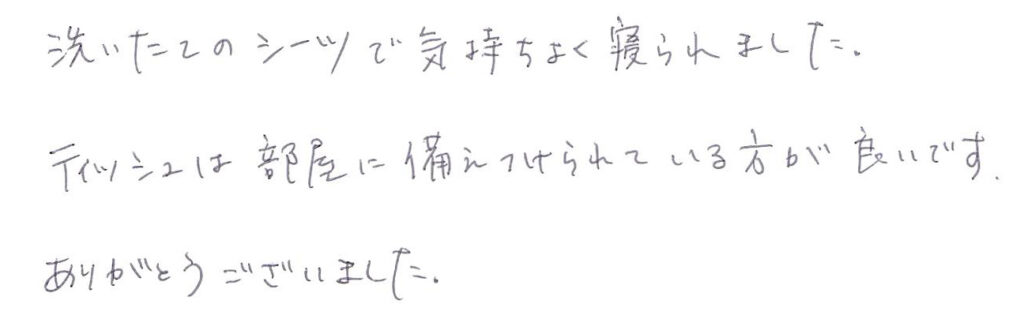 洗いたてのシーツで気持ちよく寝られました.
ティッシュは部屋に備えつけられている方が良いです.
ありがとうございました.